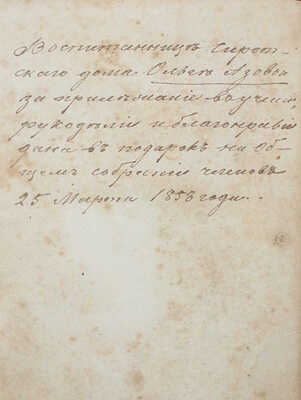 Воспитанницѣ Сирот-
скаго дома Ольгѣ Азовой
за прилѣжаніе въ ученіи,
рукодѣліи и благонравіе
дана въ подарокъ на Об-
щемъ собраніи членовъ
25 Марта 1858 года.